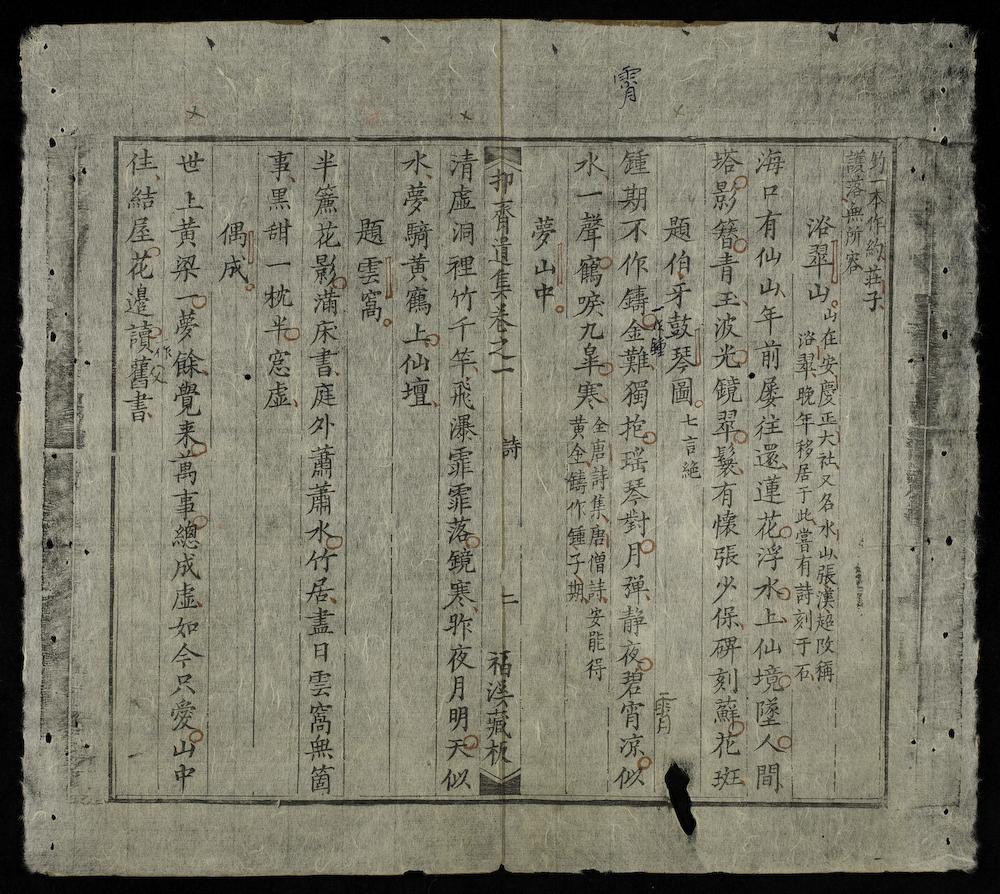 霄
釣一本作約莊子
頀落無所容
浴翠山山在安慶正大社又名水山張漢超改稱
浴翠晚年移居于此嘗有詩刻于石
海口有仙山年前屢往還蓮花浮水上仙境墜人間
塔影簪青玉波光鏡翠鬟有懷張少保碑刻蘚花斑
題伯牙鼓琴圖七言絶
鍾期不作鑄金難獨抱瑶琴對月彈静夜碧宵凉似
一作鍾
霄
水一聲鶴唳九臯寒全唐詩集唐僧詩安能得
黄金鑄作鍾子期
夢山中
抑齋遺集卷之一 詩 二 福溪藏板
清虚洞裡竹千竿飛瀑霏霏落鏡寒昨夜月明天似
水夢騎黄鶴上仙壇
題雲窩
半簾花影滿床書庭外蕭蕭水竹居盡日雲窩無箇
事黑甜一枕半窓虚
偶成
世上黄梁一夢餘覺来萬事總成虚如今只愛山中
作
住結屋花邉讀舊書